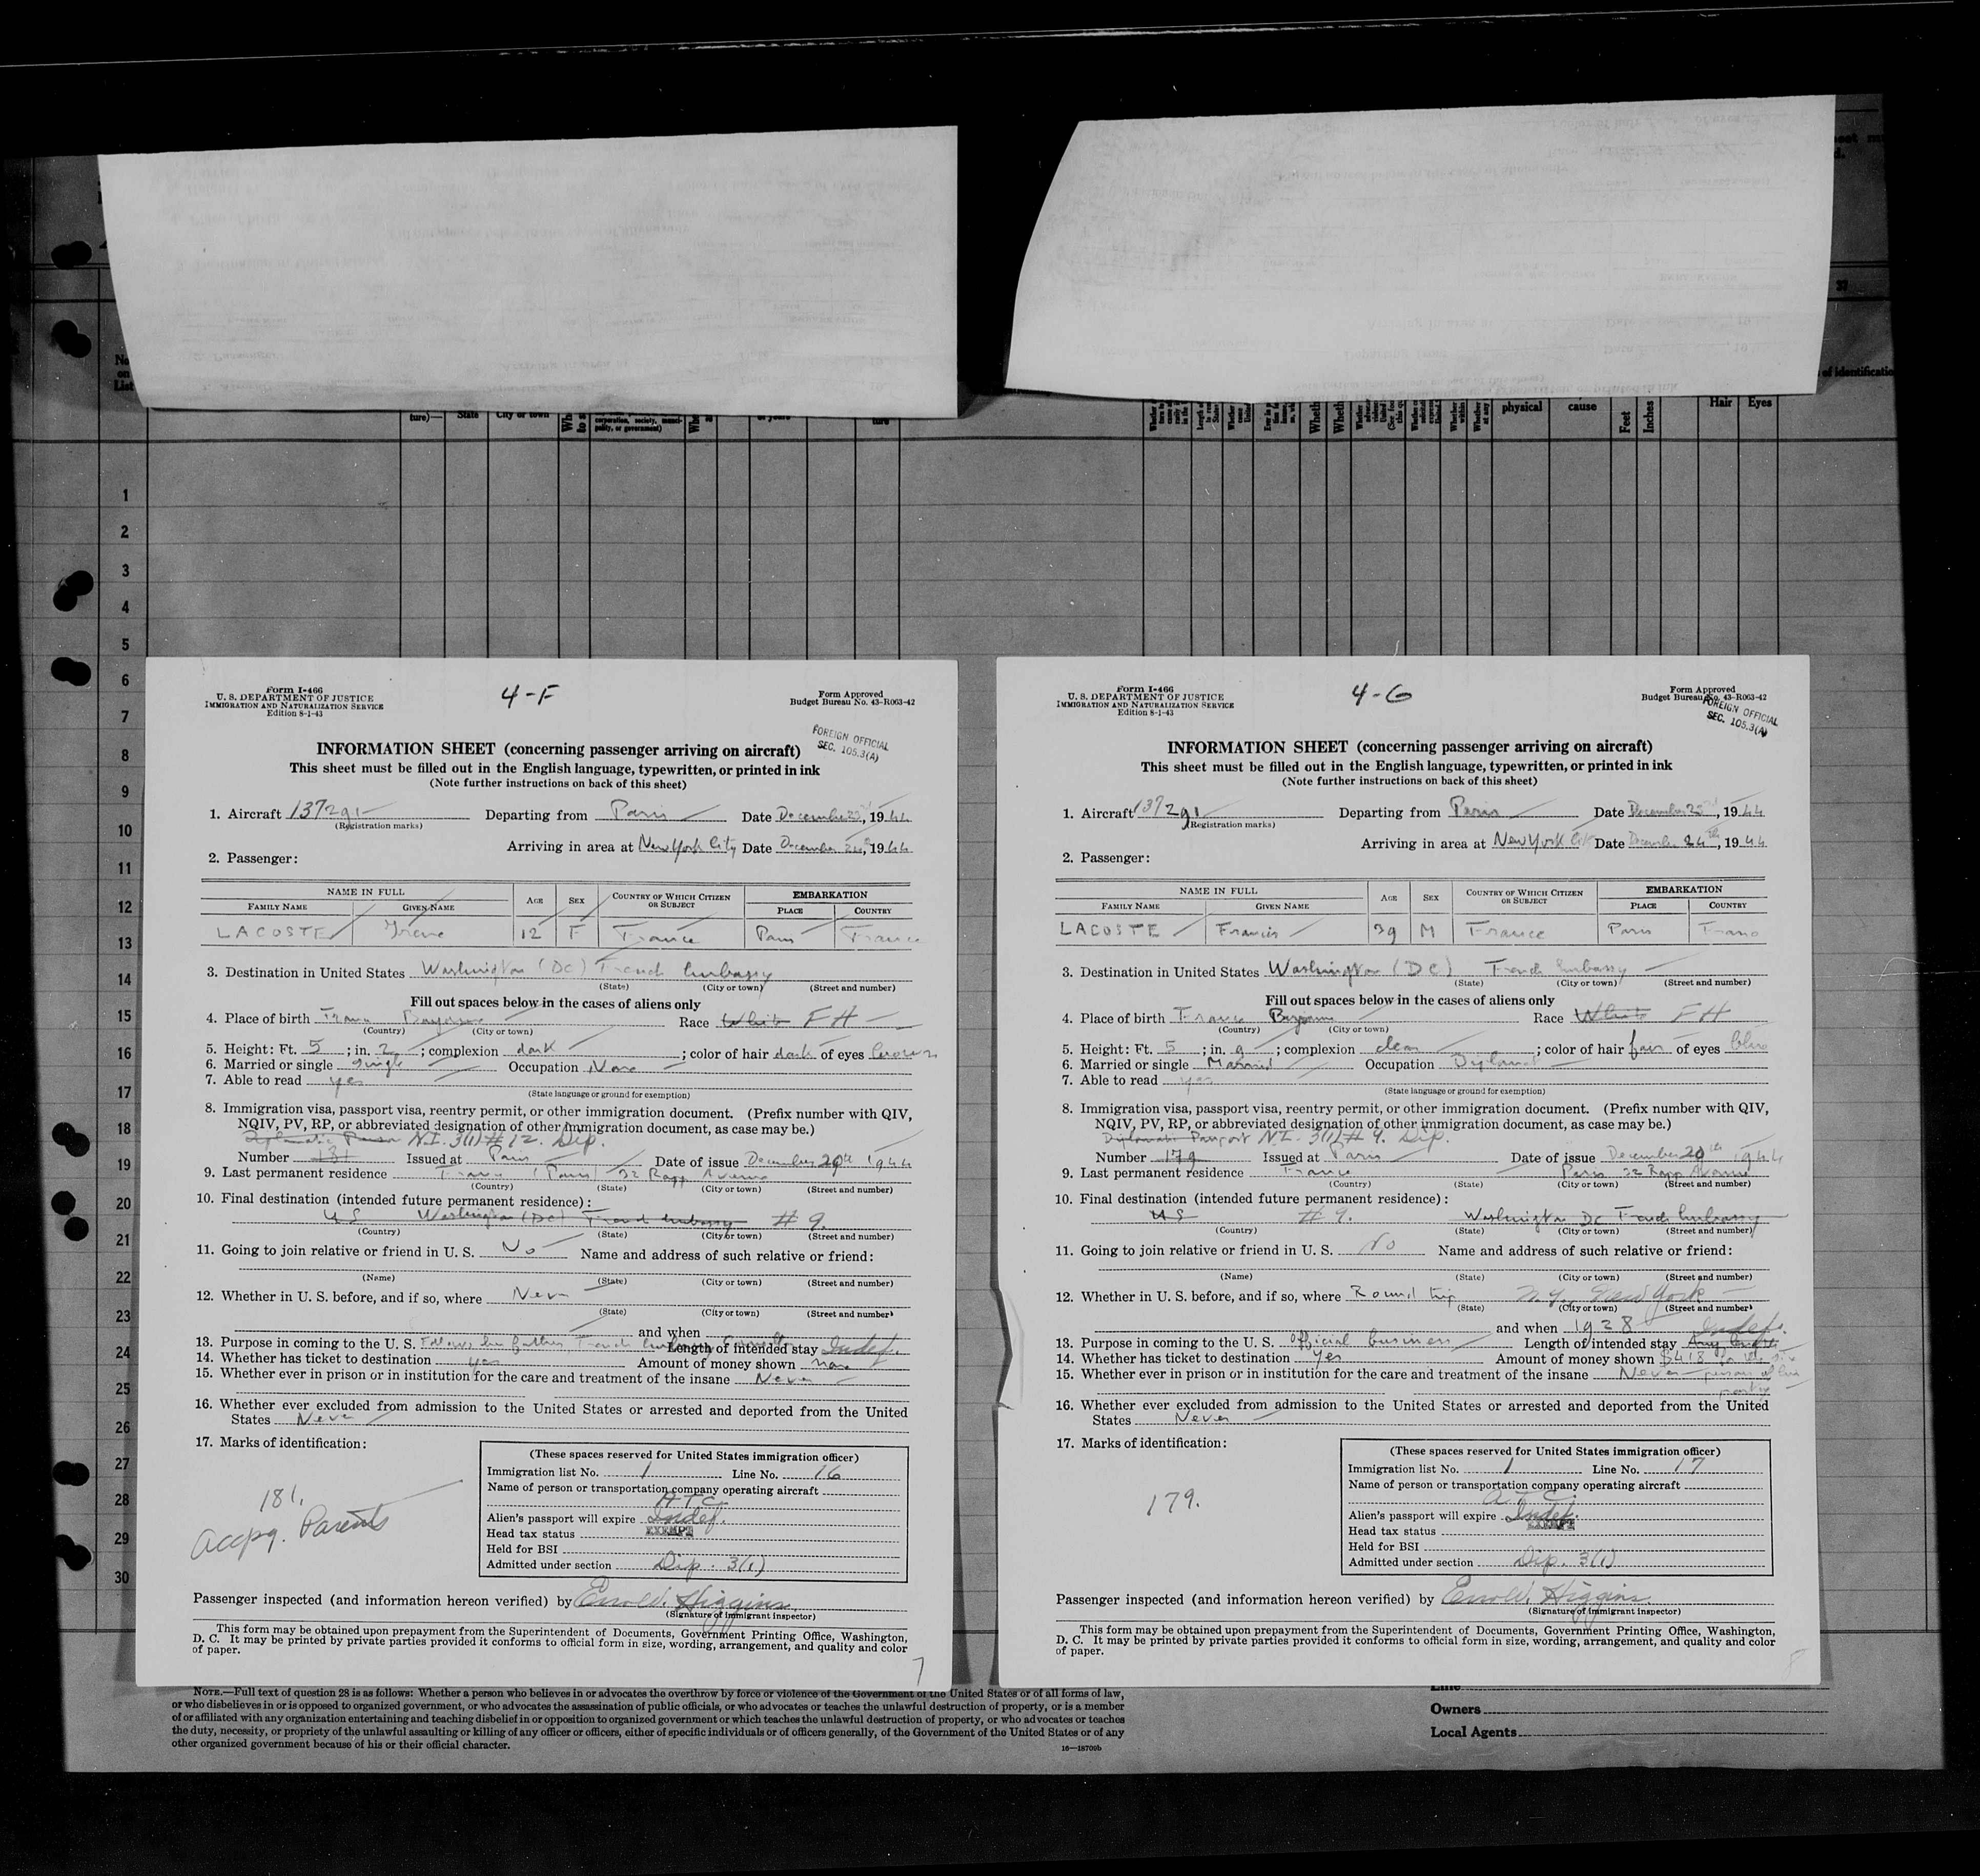 No
on
List
ture)—
State
City or town
corporation, society, munici-
pality, or government)
physical
cause
Feet
Inches
Hair
Eyes
of Identificatio
37
1
2
3
4
5
6
7
8
9
10
11
12
13
14
15
16
17
18
19
20
21
22
23
24
25
26
27
28
29
30
Form I-466
U. S. DEPARTMENT OF JUSTICE
IMMIGRATION AND NATURALIZATION SERVICE
Edition 8-1-43
4-F
Form Approved
Budget Bureau No. 43-R063-42
FOREIGN OFFICIAL
SEC. 105.3(A)
INFORMATION SHEET (concerning passenger arriving on aircraft)
This sheet must be filled out in the English language, typewritten, or printed in ink
(Note further instructions on back of this sheet)
1. Aircraft 137291 Departing from Paris Date December 22, 1944
(Registration marks)
Arriving in area at New York City Date December 24, 1944
2. Passenger:
NAME IN FULL AGE SEX COUNTRY OF WHICH CITIZEN OR SUBJECT EMBARKATION
FAMILY NAME GIVEN NAME PLACE COUNTRY
LACOSTE Irene 12 F France Paris France
3. Destination in United States Washington (DC) French Embassy
(State) (City or town) (Street and number)
Fill out spaces below in the cases of aliens only
4. Place of birth France Bayonne Race White FH
(Country) (City or town)
5. Height: Ft. 5; in. 2; complexion dark; color of hair dark of eyes brown
6. Married or single Single Occupation None
7. Able to read yes
(State language or ground for exemption)
8. Immigration visa, passport visa, reentry permit, or other immigration document. (Prefix number with QIV,
NQIV, PV, RP, or abbreviated designation of other immigration document, as case may be.)
N.I. 3(1) # 12. Dip.
Number 181 Issued at Paris Date of issue December 20th 1944
9. Last permanent residence France (Paris) 32 Rapp Avenue
(Country) (State) (City or town) (Street and number)
10. Final destination (intended future permanent residence):
US Washington (DC) French Embassy # 9.
(Country) (State) (City or town) (Street and number)
11. Going to join relative or friend in U. S. No Name and address of such relative or friend:
(Name) (State) (City or town) (Street and number)
12. Whether in U. S. before, and if so, where Never
(State) (City or town) (Street and number)
and when
13. Purpose in coming to the U. S. Follows her father, French Length of intended stay Indef.
14. Whether has ticket to destination yes Amount of money shown none
15. Whether ever in prison or in institution for the care and treatment of the insane Never
16. Whether ever excluded from admission to the United States or arrested and deported from the United
States Never
17. Marks of identification:
181.
Accpg. Parents
(These spaces reserved for United States immigration officer)
Immigration list No. 1 Line No. 16
Name of person or transportation company operating aircraft
A.T.C.
Alien's passport will expire Indef.
Head tax status EXEMPT
Held for BSI
Admitted under section Dip. 3(1)
Passenger inspected (and information hereon verified) by Errol W. Higgins
(Signature of immigrant inspector)
This form may be obtained upon prepayment from the Superintendent of Documents, Government Printing Office, Washington,
D. C. It may be printed by private parties provided it conforms to official form in size, wording, arrangement, and quality and color
of paper.
7
Form I-466
U. S. DEPARTMENT OF JUSTICE
IMMIGRATION AND NATURALIZATION SERVICE
Edition 8-1-43
4-G
Form Approved
Budget Bureau No. 43-R063-42
FOREIGN OFFICIAL
SEC. 105.3(A)
INFORMATION SHEET (concerning passenger arriving on aircraft)
This sheet must be filled out in the English language, typewritten, or printed in ink
(Note further instructions on back of this sheet)
1. Aircraft 137291 Departing from Paris Date December 22, 1944
(Registration marks)
Arriving in area at New York City Date December 24th, 1944
2. Passenger:
NAME IN FULL AGE SEX COUNTRY OF WHICH CITIZEN OR SUBJECT EMBARKATION
FAMILY NAME GIVEN NAME PLACE COUNTRY
LACOSTE Francis 39 M France Paris France
3. Destination in United States Washington (DC) French Embassy
(State) (City or town) (Street and number)
Fill out spaces below in the cases of aliens only
4. Place of birth France Race White FH
(Country) (City or town)
5. Height: Ft. 5; in. 9; complexion clear; color of hair fair of eyes blue
6. Married or single Married Occupation Diplomat
7. Able to read yes
(State language or ground for exemption)
8. Immigration visa, passport visa, reentry permit, or other immigration document. (Prefix number with QIV,
NQIV, PV, RP, or abbreviated designation of other immigration document, as case may be.)
Diplomatic Passport N.I. 3(1) # 9. Dip.
Number 179 Issued at Paris Date of issue December 20th 1944
9. Last permanent residence France Paris 32 Rapp Avenue
(Country) (State) (City or town) (Street and number)
10. Final destination (intended future permanent residence):
US # 9. Washington Dc French Embassy
(Country) (State) (City or town) (Street and number)
11. Going to join relative or friend in U. S. No Name and address of such relative or friend:
(Name) (State) (City or town) (Street and number)
12. Whether in U. S. before, and if so, where Round trip N.Y., New York
(State) (City or town) (Street and number)
and when 1928
13. Purpose in coming to the U. S. Official business Length of intended stay Indef.
14. Whether has ticket to destination yes Amount of money shown $418 for the six
15. Whether ever in prison or in institution for the care and treatment of the insane Never
16. Whether ever excluded from admission to the United States or arrested and deported from the United
States Never
17. Marks of identification:
179.
(These spaces reserved for United States immigration officer)
Immigration list No. 1 Line No. 17
Name of person or transportation company operating aircraft
A.T.C.
Alien's passport will expire Indef.
Head tax status EXEMPT
Held for BSI
Admitted under section Dip. 3(1)
Passenger inspected (and information hereon verified) by Errol W. Higgins
(Signature of immigrant inspector)
This form may be obtained upon prepayment from the Superintendent of Documents, Government Printing Office, Washington,
D. C. It may be printed by private parties provided it conforms to official form in size, wording, arrangement, and quality and color
of paper.
NOTE.—Full text of question 28 is as follows: Whether a person who believes in or advocates the overthrow by force or violence of the Government of the United States or of all forms of law,
or who disbelieves in or is opposed to organized government, or who advocates the assassination of public officials, or who advocates or teaches the unlawful destruction of property, or is a member
of or affiliated with any organization entertaining and teaching disbelief in or opposition to organized government or which teaches the unlawful destruction of property, or who advocates or teaches
the duty, necessity, or propriety of the unlawful assaulting or killing of any officer or officers, either of specific individuals or of officers generally, of the Government of the United States or of any
other organized government because of his or their official character.
16—18709b
Line
Owners
Local Agents